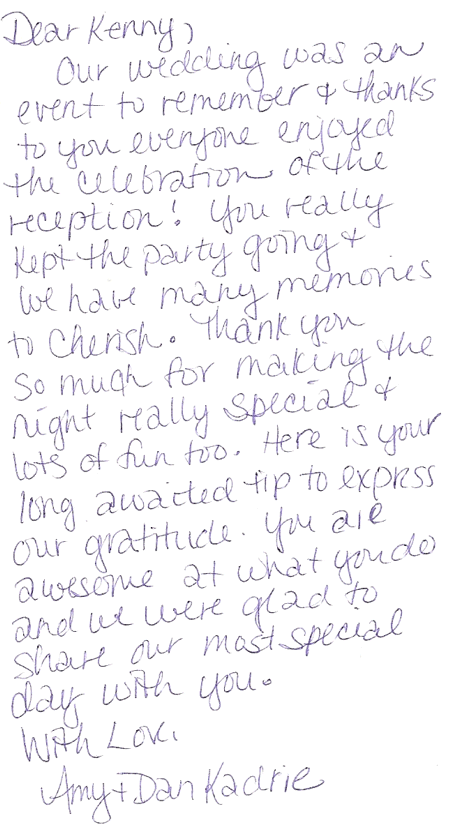 Dear Kenny,
Our wedding was an
event to remember & thanks
to you everyone enjoyed
the celebration of the
reception! You really
kept the party going &
we have many memories
to cherish. Thank you
so much for making the
night really special &
lots of fun too. Here is your
long awaited tip to express
our gratitude. You are
awesome at what you do
and we were glad to
share our most special
day with you.
With Love,
Amy + Dan Kadrie